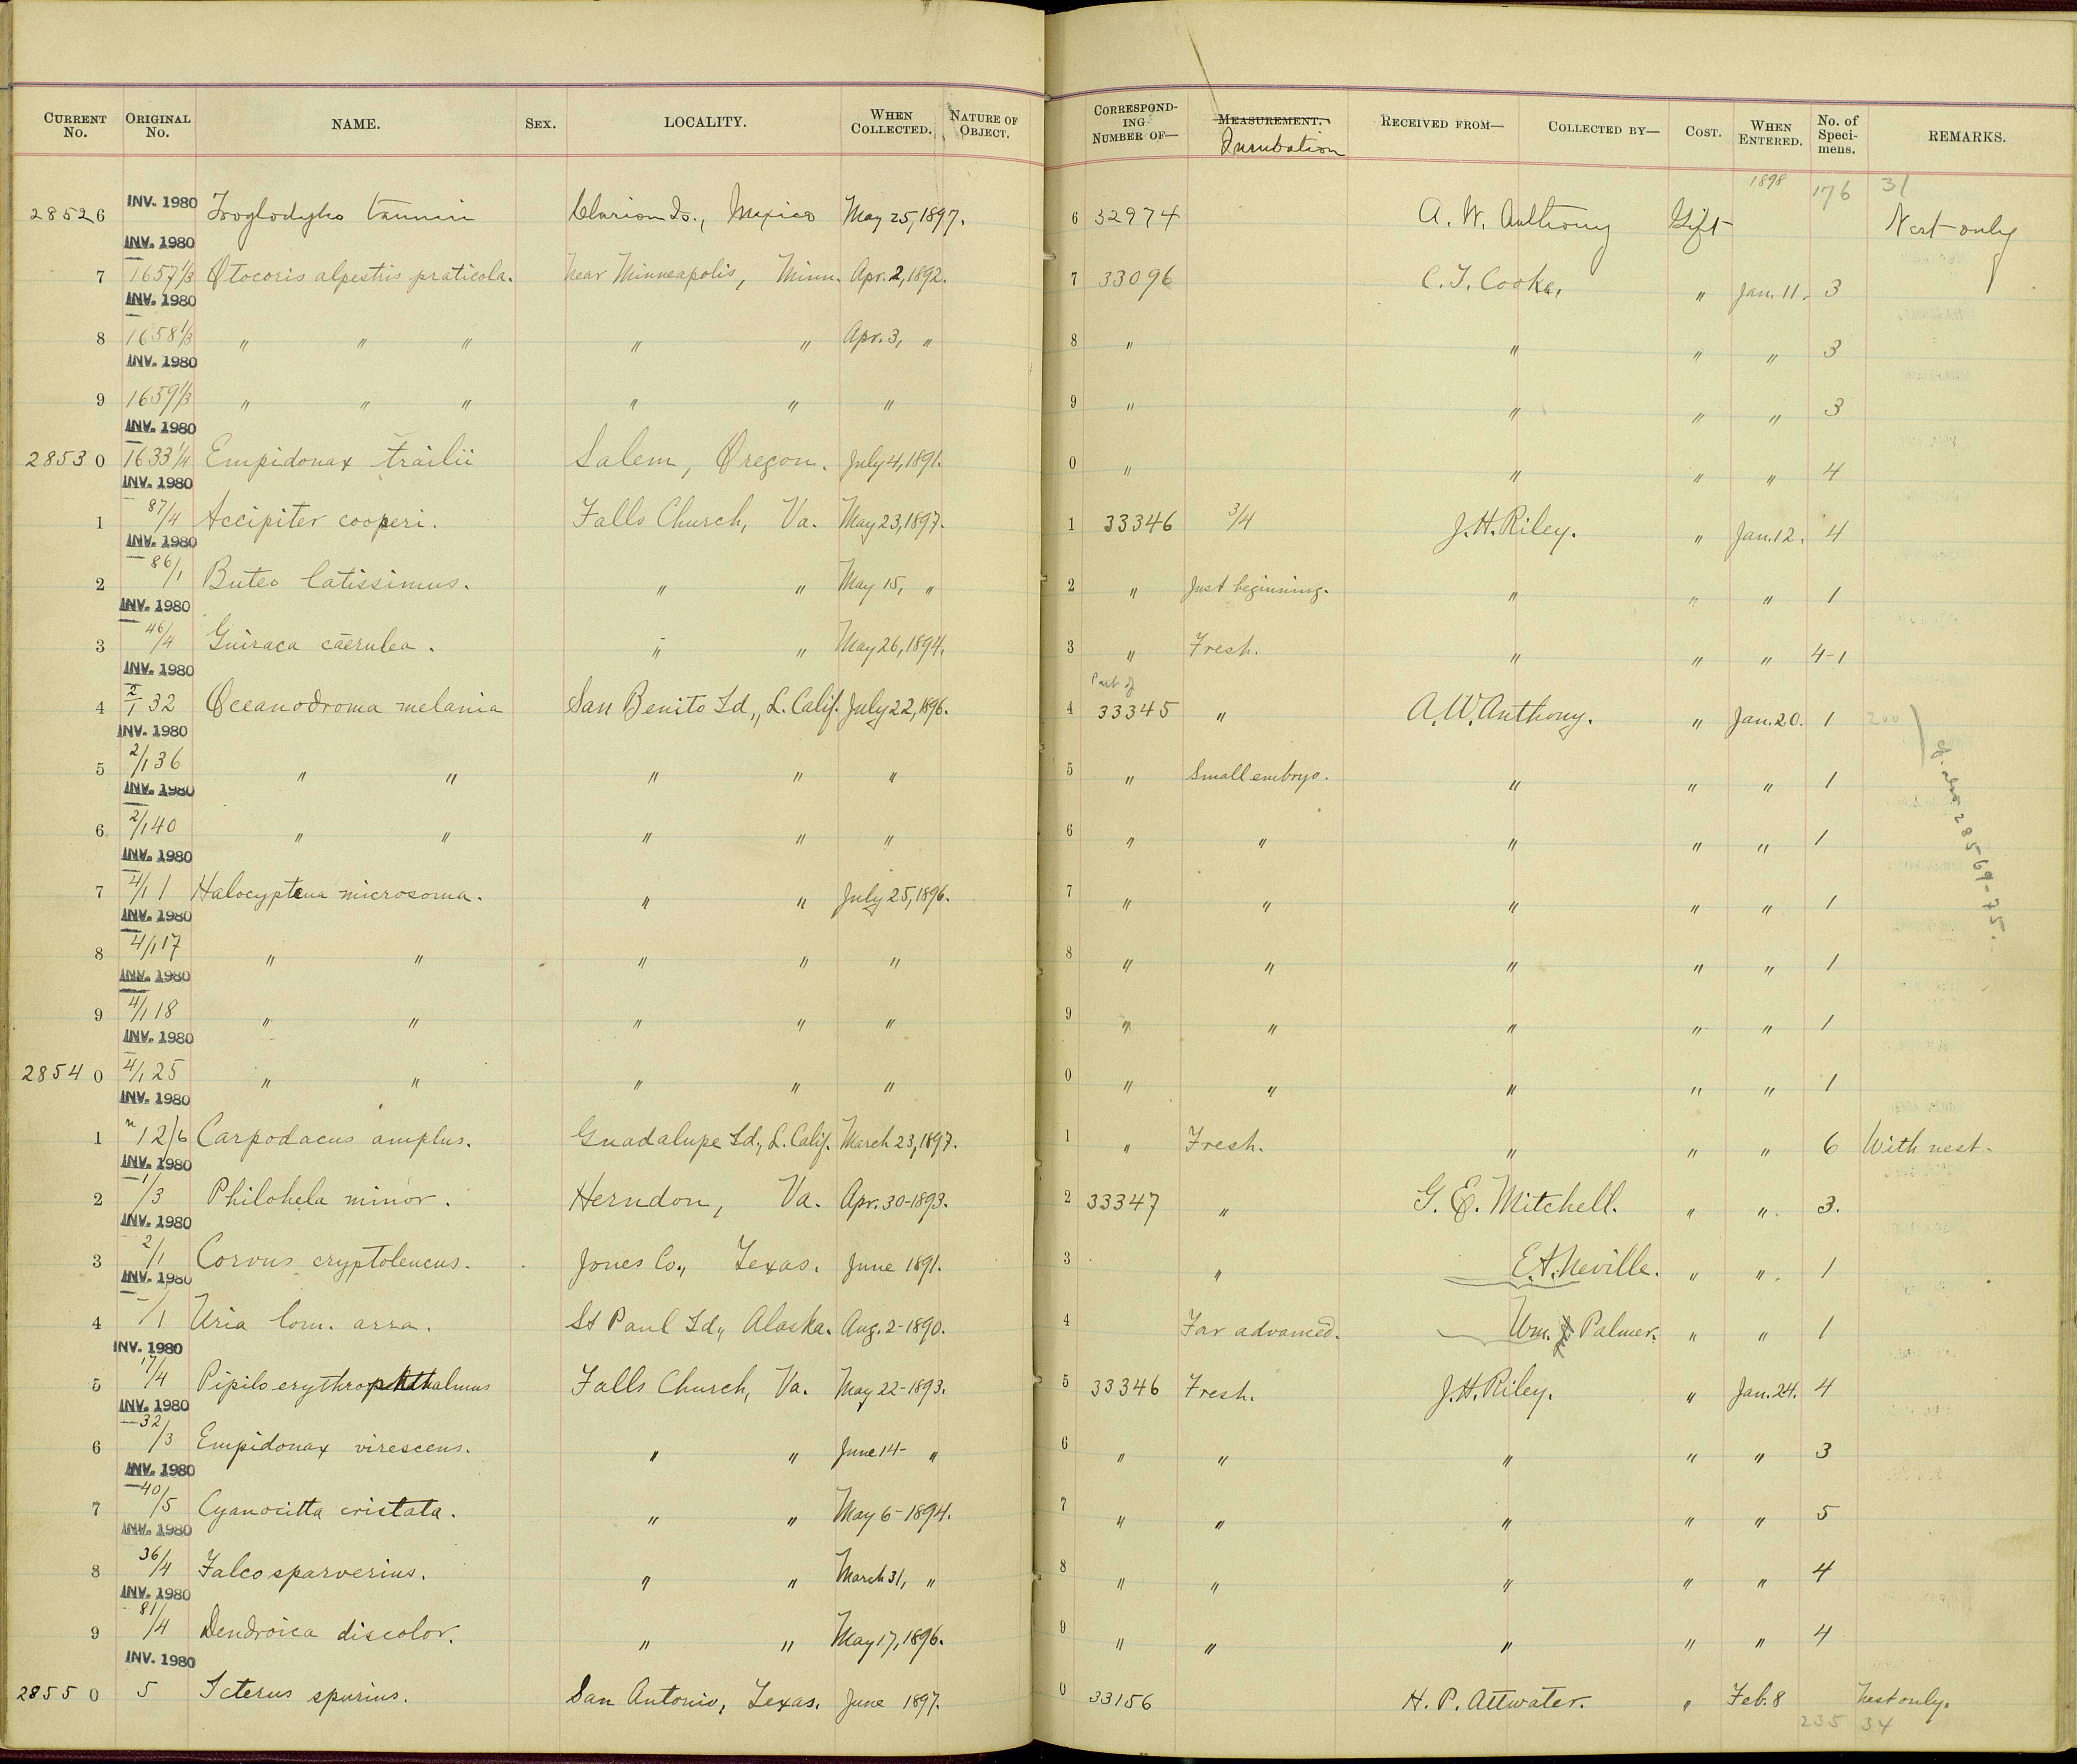 CURRENT No. ORIGINAL No. NAME. SEX. LOCALITY. WHEN COLLECTED. NATURE OF OBJECT. CORRESPONDING NUMBER OF— MEASUREMENT. Incubation RECEIVED FROM— COLLECTED BY— COST. WHEN ENTERED. No. of Specimens. REMARKS.
1898 176 31
28526 INV. 1980 Troglodytes tanneri Clarion Is., Mexico May 25, 1897. 6 32974 A. W. Anthony Gift Nest only
INV. 1980
7 1657 1/3 Otocoris alpestris praticola. near Minneapolis, Minn. Apr. 2, 1892. 7 33096 C. T. Cooke, " Jan. 11. 3
INV. 1980
8 1658 1/3 " " " " " Apr. 3, " 8 " " " " 3
INV. 1980
9 1659 1/3 " " " " " " 9 " " " " 3
INV. 1980
28530 1633 1/4 Empidonax trailii Salem, Oregon. July 4, 1891. 0 " " " " 4
INV. 1980
1 87/4 Accipiter cooperi. Falls Church, Va. May 23, 1897. 1 33346 3/4 J. H. Riley. " Jan. 12. 4
INV. 1980
2 86/1 Buteo latissimus. " " May 15, " 2 " Just beginning. " " " 1
INV. 1980
3 46/4 Guiraca cærulea. " " May 26, 1894. 3 " Fresh. " " " 4-1
INV. 1980
Part of
4 2/1 32 Oceanodroma melania San Benito Id., L. Calif. July 22, 1896. 4 33345 " A. W. Anthony. " Jan. 20. 1
INV. 1980
5 2/1 36 " " " " " 5 " Small embryo. " " " 1
INV. 1980
6 2/1 40 " " " " " 6 " " " " " 1
INV. 1980
7 4/1 1 Halocyptena microsoma. " " July 25, 1896. 7 " " " " " 1
INV. 1980
8 4/1 17 " " " " " 8 " " " " " 1
INV. 1980
9 4/1 18 " " " " " 9 " " " " " 1
INV. 1980
28540 4/1 25 " " " " " 0 " " " " " 1
INV. 1980
1 n 12/6 Carpodacus amplus. Guadalupe Id., L. Calif. March 23, 1897. 1 " Fresh. " " " 6 With nest.
INV. 1980
2 1/3 Philohela minor. Herndon, Va. Apr. 30-1893. 2 33347 " G. E. Mitchell. " " 3.
INV. 1980
3 2/1 Corvus cryptoleucus. Jones Co., Texas. June 1891. 3 " E. A. Neville. " " 1
INV. 1980
4 /1 Uria lom. arra. St Paul Id., Alaska. Aug. 2-1890. 4 Far advanced. Wm. Palmer. " " 1
INV. 1980
5 17/4 Pipilo erythrophthalmus Falls Church, Va. May 22-1893. 5 33346 Fresh. J. H. Riley. " Jan. 24. 4
INV. 1980
6 32/3 Empidonax virescens. " " June 14- " 6 " " " " " 3
INV. 1980
7 40/5 Cyanocitta cristata. " " May 6-1894. 7 " " " " " 5
INV. 1980
8 36/4 Falco sparverius. " " March 31, " 8 " " " " " 4
INV. 1980
9 81/4 Dendroica discolor. " " May 17, 1896. 9 " " " " " 4
INV. 1980
28550 5 Icterus spurius. San Antonio, Texas. June 1897. 0 33156 H. P. Attwater. " Feb. 8 Nest only.
235 34